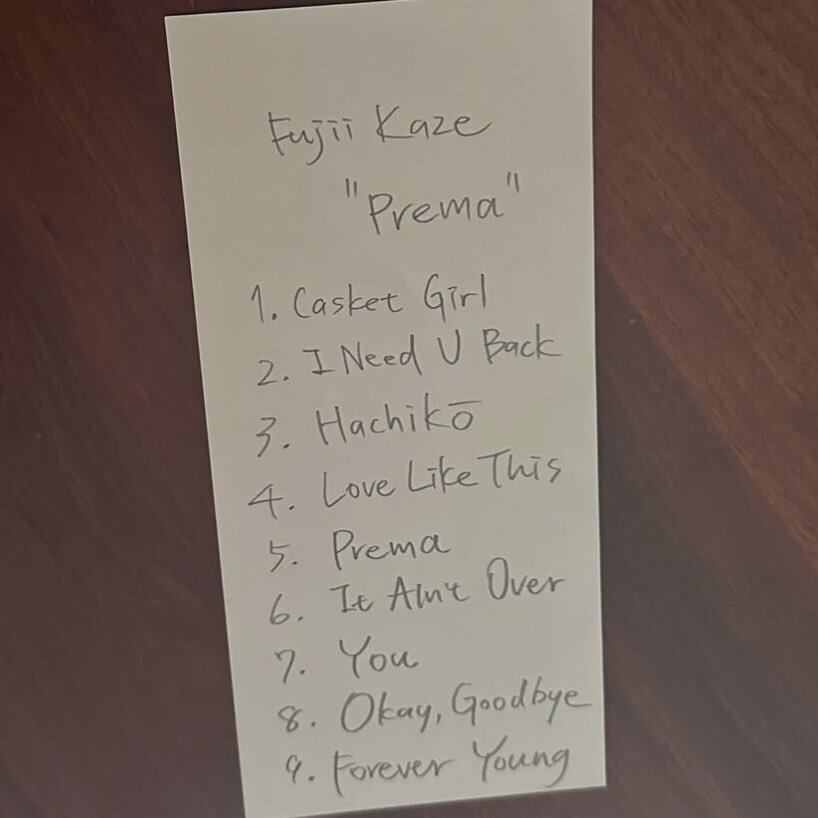 Fujii Kaze
"Prema"
1. Casket Girl
2. I Need U Back
3. Hachikō
4. Love Like This
5. Prema
6. It Ain't Over
7. You
8. Okay, Goodbye
9. Forever Young